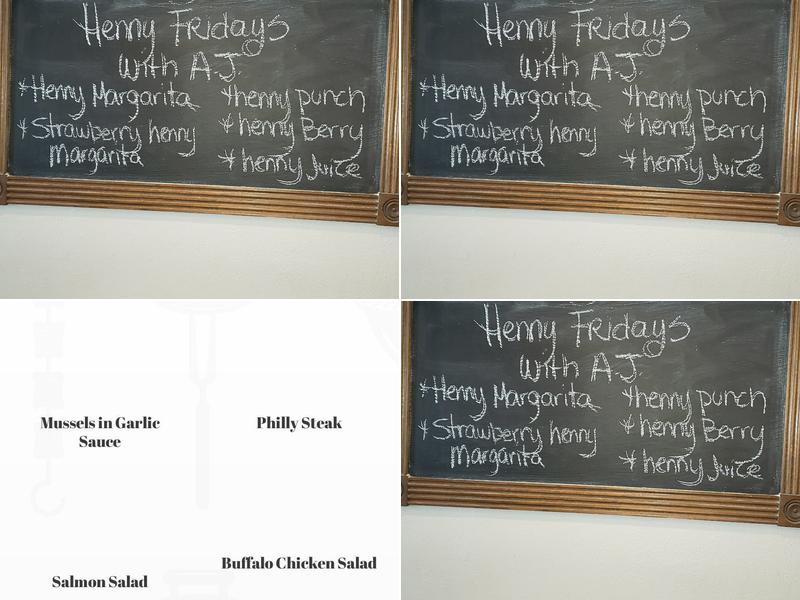 Henny Fridays
with A.J.
*Henny Margarita
*henny punch
* Strawberry henny
margarita
* henny Berry
* henny Juice
Henny Fridays
with A.J.
*Henny Margarita
*henny punch
* Strawberry henny
margarita
* henny Berry
* henny Juice
Mussels in Garlic
Sauce
Philly Steak
Salmon Salad
Buffalo Chicken Salad
Henny Fridays
with A.J.
*Henny Margarita
*henny punch
* Strawberry henny
margarita
* henny Berry
* henny Juice